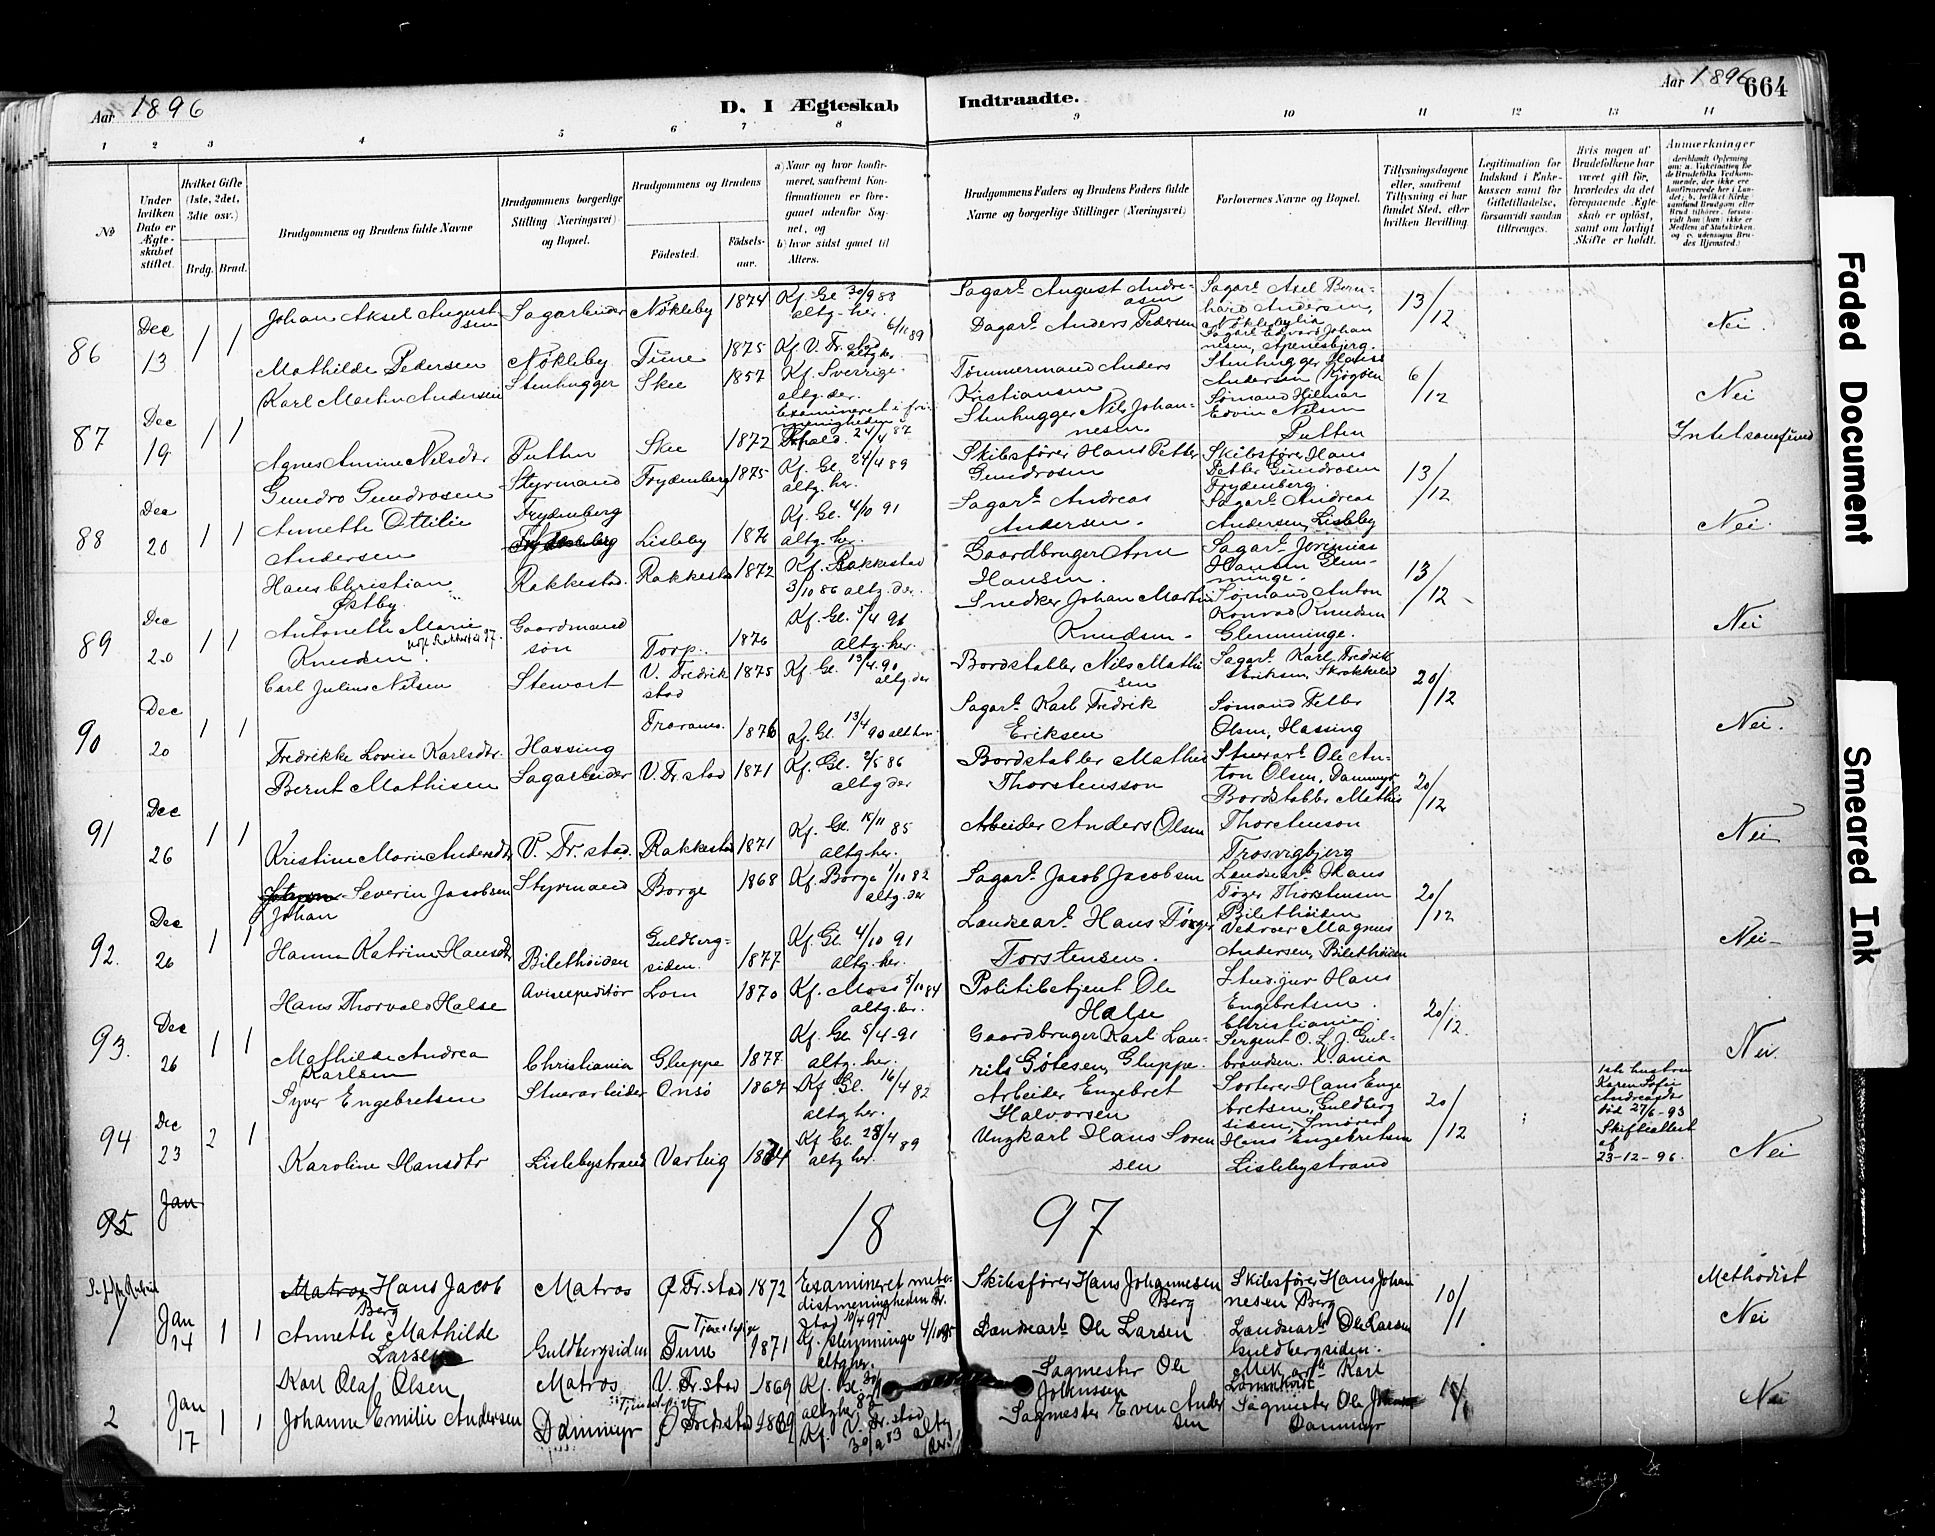 Aar 1896
D. I Ægteskab Indtraadte.
Aar 1896
664
1 2 3 4 5 6 7 8 9 10 11 12 13 14
No
Under hvilken Dato er Ægteskabet stiftet.
Hvilket Gifte (1ste, 2det, 3die osv.)
Brdg. Brud.
Brudgommens og Brudens fulde Navne
Brudgommens borgerlige Stilling (Næringsvei) og Bopæl.
Brudgommens og Brudens
Fødested.
Fødselsaar.
a) Naar og hvor konfirmeret, saafremt Konfirmationen er foregaaet udenfor Sognet, og
b) hvor sidst gaaet til Alters.
Brudgommens Faders og Brudens Faders fulde Navne og borgerlige Stillinger (Næringsvei)
Forlovernes Navne og Bopæl.
Tillysningsdagene eller, saafremt Tillysning ei har fundet Sted, efter hvilken Bevilling
Legitimation for Indskud i Enkekassen samt for Giftetilladelse, forsaavidt saadan tiltrænges.
Hvis nogen af Brudefolkene har været gift før, hvorledes da det foregaaende Ægteskab er opløst, samt om lovligt Skifte er holdt.
Anmærkninger
86 Dec 13 1 1
Johan Aksel Augustsen Sagarbeider Nökleby 1874 Kf. Gl. 30/9 88 altg. her.
Sagarb. August Andreasen Sagarb. Axel Bernhard Andersen, Nöklebylia 13/12 Nei.
Mathilde Pedersen Nökleby Tune 1875 Kf. V. Fr.stad 6/10 89 altg. her
Dagarb. Anders Pedersen Johannesen, Apenesbjerg.
87 Dec 19 1 1
Karl Martin Andersen Stenhugger Skee 1857 Kf. Sverrige. altg. der.
Tømmermand Anders Kristiansen Stenhugger Hans Andersen Kjøgøen 6/12 Nei
Agnes Amine Nilsdtr Putten Skee 1872 Examineret i frimenigheden i Fr.hald. 24/4 87
Stenhugger Nils Johannesen. Sømand Hilmar Edvin Nilsen Putten
88 Dec 20 1 1
Gundro Gundrosen Styrmand Frydenberg Frydenberg 1875 Kf. Gl. 24/4 89 altg. her.
Skibsfører Hans Petter Gundrosen Skibsfører Hans Petter Gundrosen Frydenberg. 13/12 Nei.
Annette Ottilie Andersen Lisleby 1876 Kf. Gl. 4/10 91 altg. her.
Sagarb. Andreas Andersen. Sagarb. Andreas Andersen, Lisleby
89 Dec 20 1 1
Hans Christian Østby Rakkestad. Rakkestad 1872 Kf. Rakkestad 3/10 86 altg. der.
Gaardbruger Arne Hansen. Sagarb. Jeremias Hansen Glemminge. 13/12 Nei
Antonette Marie Knudsen. Gaardmandssön Torp. 1876 Kf. Gl. 5/4 91 altg. her.
Snedker Johan Martin Knudsen. Sømand Anton Konrad Knudsen Glemminge.
90 Dec 20 1 1
Carl Julius Nilsen Stewart V. Fredrikstad 1875 Kf. Gl. 13/4. 90 altg. der
Bordstabler Nils Mathisen Sagarb. Karl Fredrik Eriksen, Skrakkelid 20/12 Nei.
Fredrikke Lovise Karlsdtr. Hassing Traramo. 1876 Kf. Gl. 13/4 90 alt her
Sagarb. Karl Fredrik Eriksen Sømand Petter Olsen, Hassing
91 Dec 26 1 1
Bernt Mathisen Sagarbeider V. Fr. stad 1871 Kf. Gl. 2/5 86 altg der
Bordstabler Mathis Thorstensson Stuerarb. Ole Anton Olsen, Dammyr 20/12 Nei
Kristine Marie Andersdtr V. Fr. stad. Rakkestad 1871 Kf. Gl. 15/11 85 altg her.
Arbeider Anders Olsen Bordstabler Mathis Thorstenson Trosvigbjerg
92. Dec 26 1 1
Johan Severin Jacobsen Styrmand Borge 1868 Kf. Borge 1/10 82 altg. der
Sagarb. Jacob Jacobsen Landsearb. Hans Tøger Thorstensen Bilethöiden 20/12 Nei
Hanna Katrine Hansdtr Bilethöiden Guldbergsiden. 1877 Kf. Gl. 4/10 91 altg. her.
Landsearb. Hans Tøger Torstensen. Magnus Andersen, Bilethöiden
93. Dec 26 1 1
Hans Thorvald Halse Avisexpeditör Lom 1870 Kf. Moss 5/10 84 altg. her.
Politibetjent Ole Halse Hans Engebretsen. Christiania. 20/12. Nei.
Mathilde Andrea Karlsen Christiania Gluppe 1877 Kf. Gl. 5/4-91 altg. her.
Gaardbruger Karl Laurits Götesen, Gluppe. Sergent O. L. J. Gulbrandsen. X.ania
94 Dec 23 2 1
Syver Engebretsen Stuerarbeider Onsö 1864 Kf. Gl. 16/4 82 altg her.
Arbeider Engebret Halvorsen Sorterer Hans Engebretsen, Guldbergsiden, 20/12
1ste hustru Karen Sofie Andreasdtr død 27/6-93 Skifteattest af 23-12-96. Nei
Karoline Hansdtr Lislebystrand Varteig 1874 Kf. Gl. 28/4 89 altg her.
Ungkarl Hans Sørensen Hans Engebretsen Lislebystrand
95 Jan
1897
1 Jan 14 1 1
Matros Hans Jacob Berg Matros Ø Fr. stad 1872 Examineret metodistmenigheden Fr.stad 10/4 97
Skibsfører Hans Johannesen Berg Skibsfører Hans Johannesen Berg 10/1 Methodist Nei
Annette Mathilde Larsen Guldbergsiden Tjenestepige Tune 1871 Kf. Glemminge 4/10 85 altg her.
Landsearb. Ole Larsen Landsearb. Ole Larsen Guldbergsiden.
2 Jan 17 1 1
Karl Olaf Olsen Matros V. Fr. stad 1869
Sagmester Ole Johnssen Mek. arb. Karl Nei
Johanne Emilie Andersen Dammyr Ø Fredrikstad 1869 Kf. V. Fr. stad 30/9 83 altg her.
Sagmester Even Andersen Sagmester Ole Dammyr
Faded Document
Smeared Ink